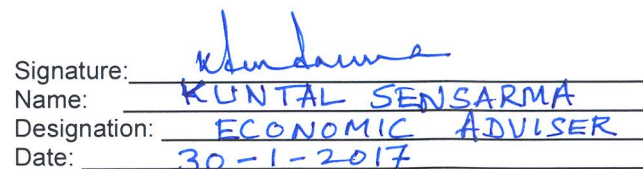 Signature:
Name: KUNTAL SENSARMA
Designation: ECONOMIC ADVISER
Date: 30-1-2017